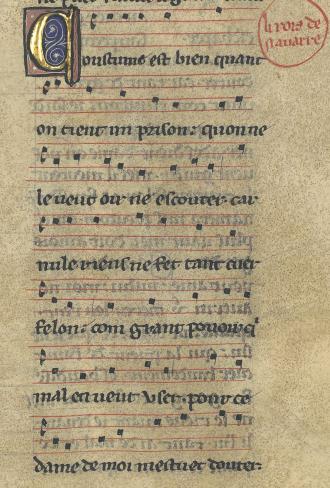 li rois de
navarre
Coustume est bien quant
on tient un prison: quon ne
le veut oir ne escouter car
nule riens ne fet tant cuer
felon: com grant pouoir q̄
mal en veut user. pour ce
dame de moi mestuet douter.